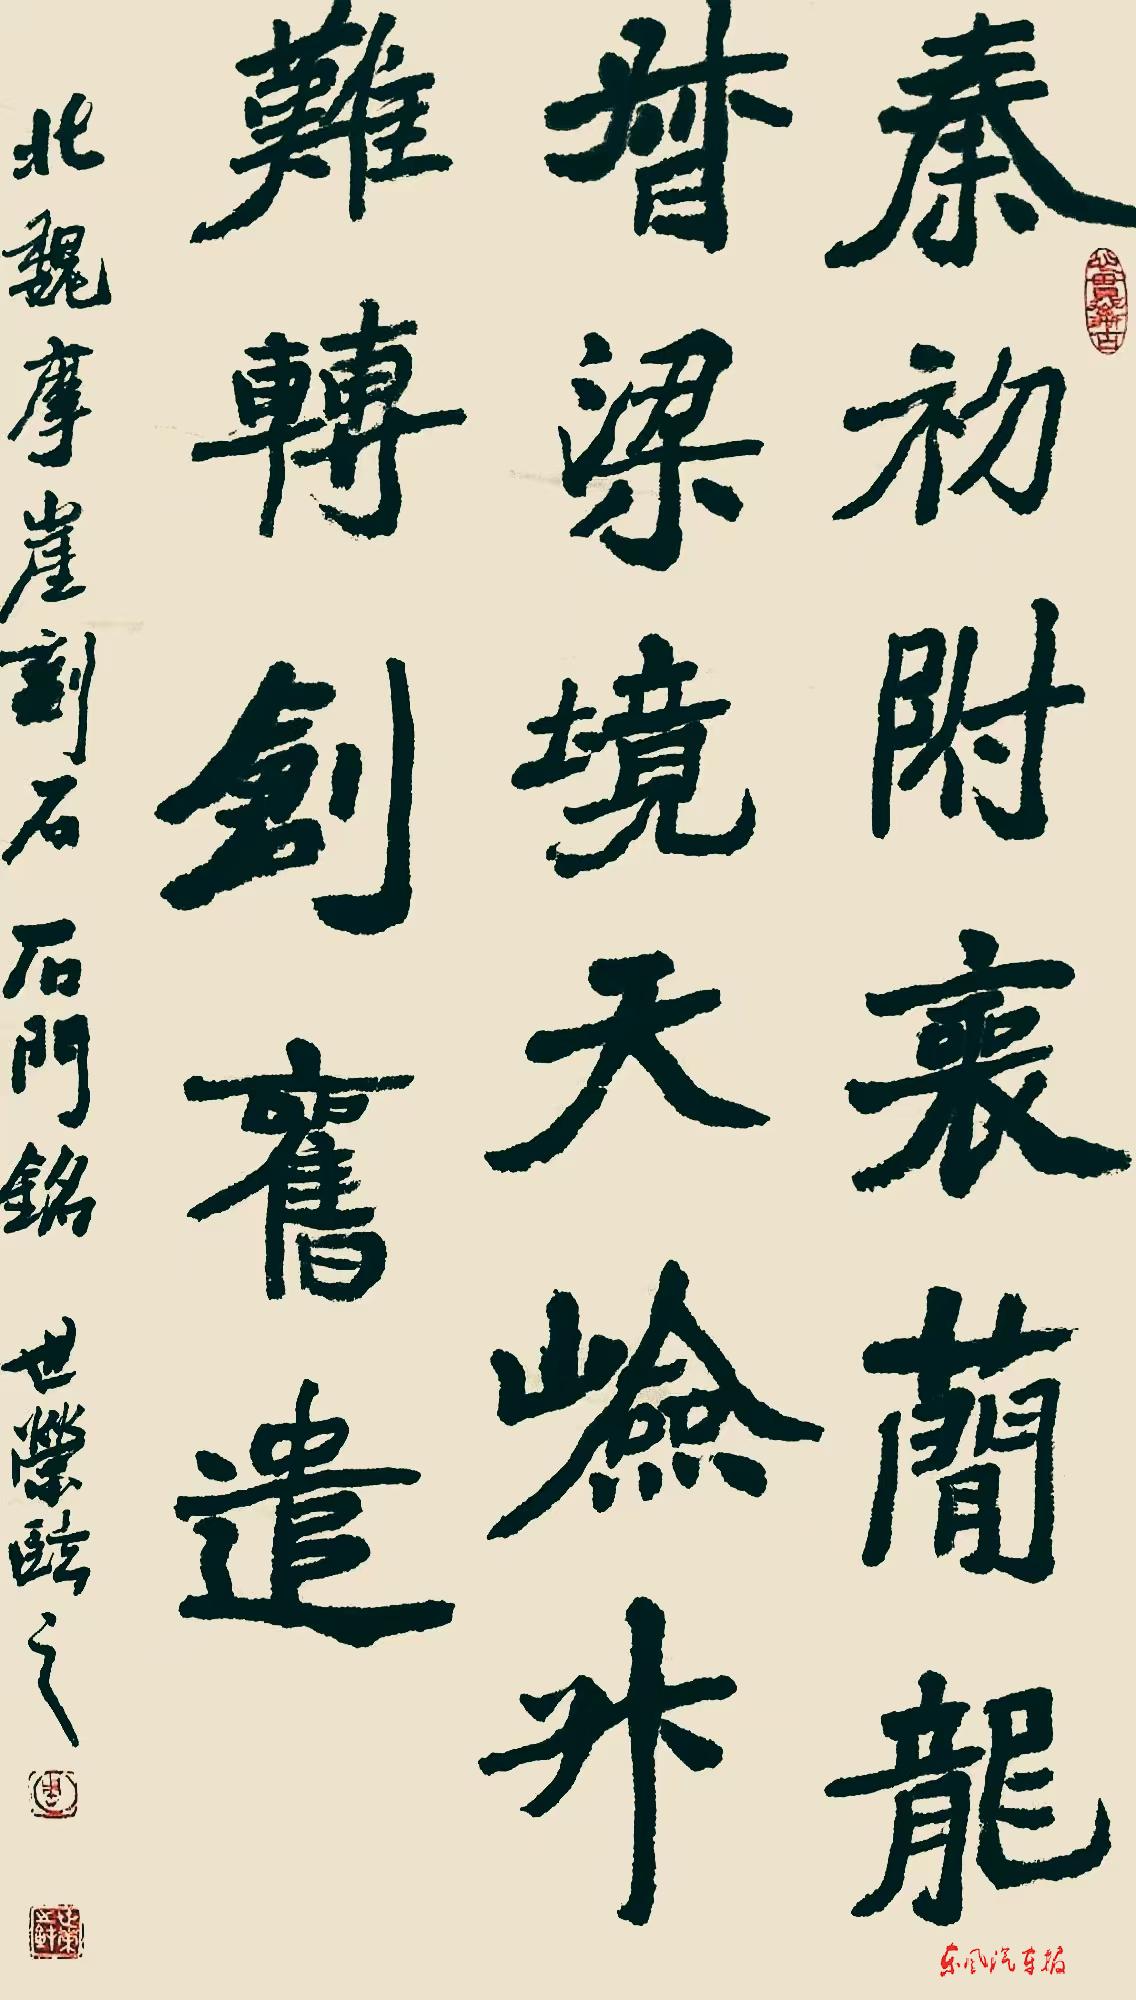 秦初附褒蕑龍
督梁境天嶮升
難轉創舊遣
北魏摩崖刻石 石門銘 世榮臨之
东风汽车报